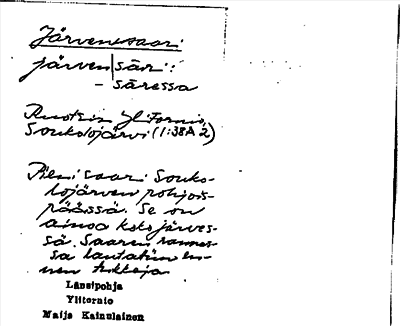 Järvensaari
järven|sāri:
- sāressa
Ruotsin Ylitornio,
Soukolojärvi (1:38A2)
Pieni saari Souko-
lojärven pohjois-
päässä. Se on
ainoa koko järves-
sä. Saaren rannas-
sa lautattiin en-
nen tukkeja
Länsipohja
Ylitornio
Maija Kainulainen